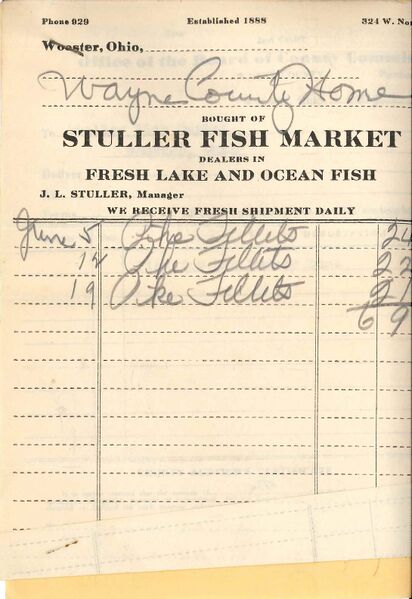 Phone 929 Established 1888 324 W. No
Wooster, Ohio,
Wayne County Home
BOUGHT OF
STULLER FISH MARKET
DEALERS IN
FRESH LAKE AND OCEAN FISH
J. L. STULLER, Manager
WE RECEIVE FRESH SHIPMENT DAILY
June 5 Pike Fillets 24
12 Pike Fillets 22
19 Pike Fillets
69